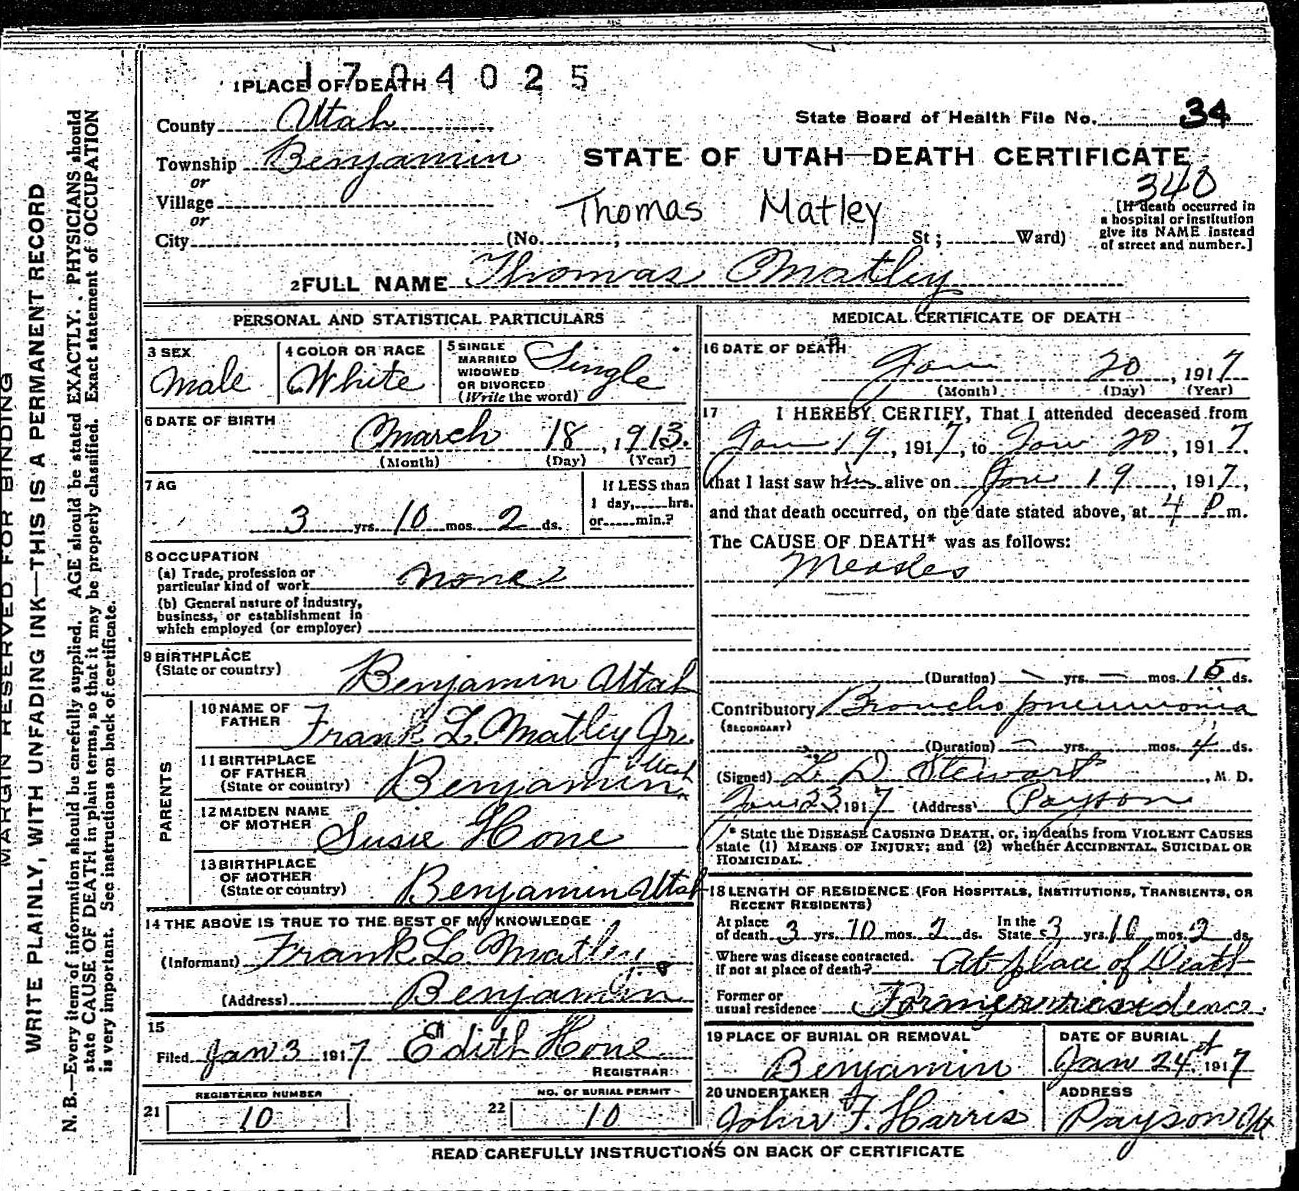 1704025
1 PLACE OF DEATH
County Utah
State Board of Health File No. 34
Township Benjamin
STATE OF UTAH—DEATH CERTIFICATE
or
340
Village
Thomas Matley
[If death occurred in
a hospital or institution
give its NAME instead
of street and number.]
or
City (No. ; St ; Ward)
2 FULL NAME Thomas Matley
PERSONAL AND STATISTICAL PARTICULARS
3 SEX
Male
4 COLOR OR RACE
White
5 SINGLE
MARRIED
WIDOWED
OR DIVORCED
(Write the word)
Single
6 DATE OF BIRTH
March 18, 1913.
(Month) (Day) (Year)
7 AG
3 yrs. 10 mos. 2 ds.
If LESS than
1 day, hrs.
or min.?
8 OCCUPATION
(a) Trade, profession or
particular kind of work None
(b) General nature of industry,
business, or establishment in
which employed (or employer)
9 BIRTHPLACE
(State or country) Benjamin Utah
PARENTS
10 NAME OF
FATHER Frank L. Matley Jr.
11 BIRTHPLACE
OF FATHER
(State or country) Benjamin Utah
12 MAIDEN NAME
OF MOTHER Susie Hone
13 BIRTHPLACE
OF MOTHER
(State or country) Benjamin Utah
14 THE ABOVE IS TRUE TO THE BEST OF MY KNOWLEDGE
(Informant) Frank L Matley
(Address) Benjamin
15
Filed Jan 3 1917 Edith Hone
REGISTRAR
21
REGISTERED NUMBER
10
22
NO. OF BURIAL PERMIT
10
MEDICAL CERTIFICATE OF DEATH
16 DATE OF DEATH
Jan 20, 1917
(Month) (Day) (Year)
17 I HEREBY CERTIFY, That I attended deceased from
Jan 19, 1917, to Jan 20, 1917.
that I last saw him alive on Jan 19, 1917,
and that death occurred, on the date stated above, at 4 P m.
The CAUSE OF DEATH* was as follows:
Measles
(Duration) — yrs. — mos. 15 ds.
Contributory Broncho pneumonia
(SECONDARY)
(Duration) — yrs. mos. 4 ds.
(Signed) L. D Stewart, M. D.
Jan 23 1917 (Address) Payson
* State the DISEASE CAUSING DEATH, or, in deaths from VIOLENT CAUSES
state (1) MEANS OF INJURY; and (2) whether ACCIDENTAL, SUICIDAL OR
HOMICIDAL.
18 LENGTH OF RESIDENCE (FOR HOSPITALS, INSTITUTIONS, TRANSIENTS, OR
RECENT RESIDENTS)
At place
of death 3 yrs. 10 mos. 2 ds.
In the
State 3 yrs. 10 mos. 2 ds.
Where was disease contracted.
if not at place of death? At place of Death
Former or
usual residence residence
19 PLACE OF BURIAL OR REMOVAL
Benjamin
DATE OF BURIAL
Jan 24 1917
20 UNDERTAKER
John F. Harris
ADDRESS
Payson Ut
READ CAREFULLY INSTRUCTIONS ON BACK OF CERTIFICATE
MARGIN RESERVED FOR BINDING
WRITE PLAINLY, WITH UNFADING INK—THIS IS A PERMANENT RECORD
N. B.—Every item of information should be carefully supplied. AGE should be stated EXACTLY. PHYSICIANS should
state CAUSE OF DEATH in plain terms, so that it may be properly classified. Exact statement of OCCUPATION
is very important. See instructions on back of certificate.